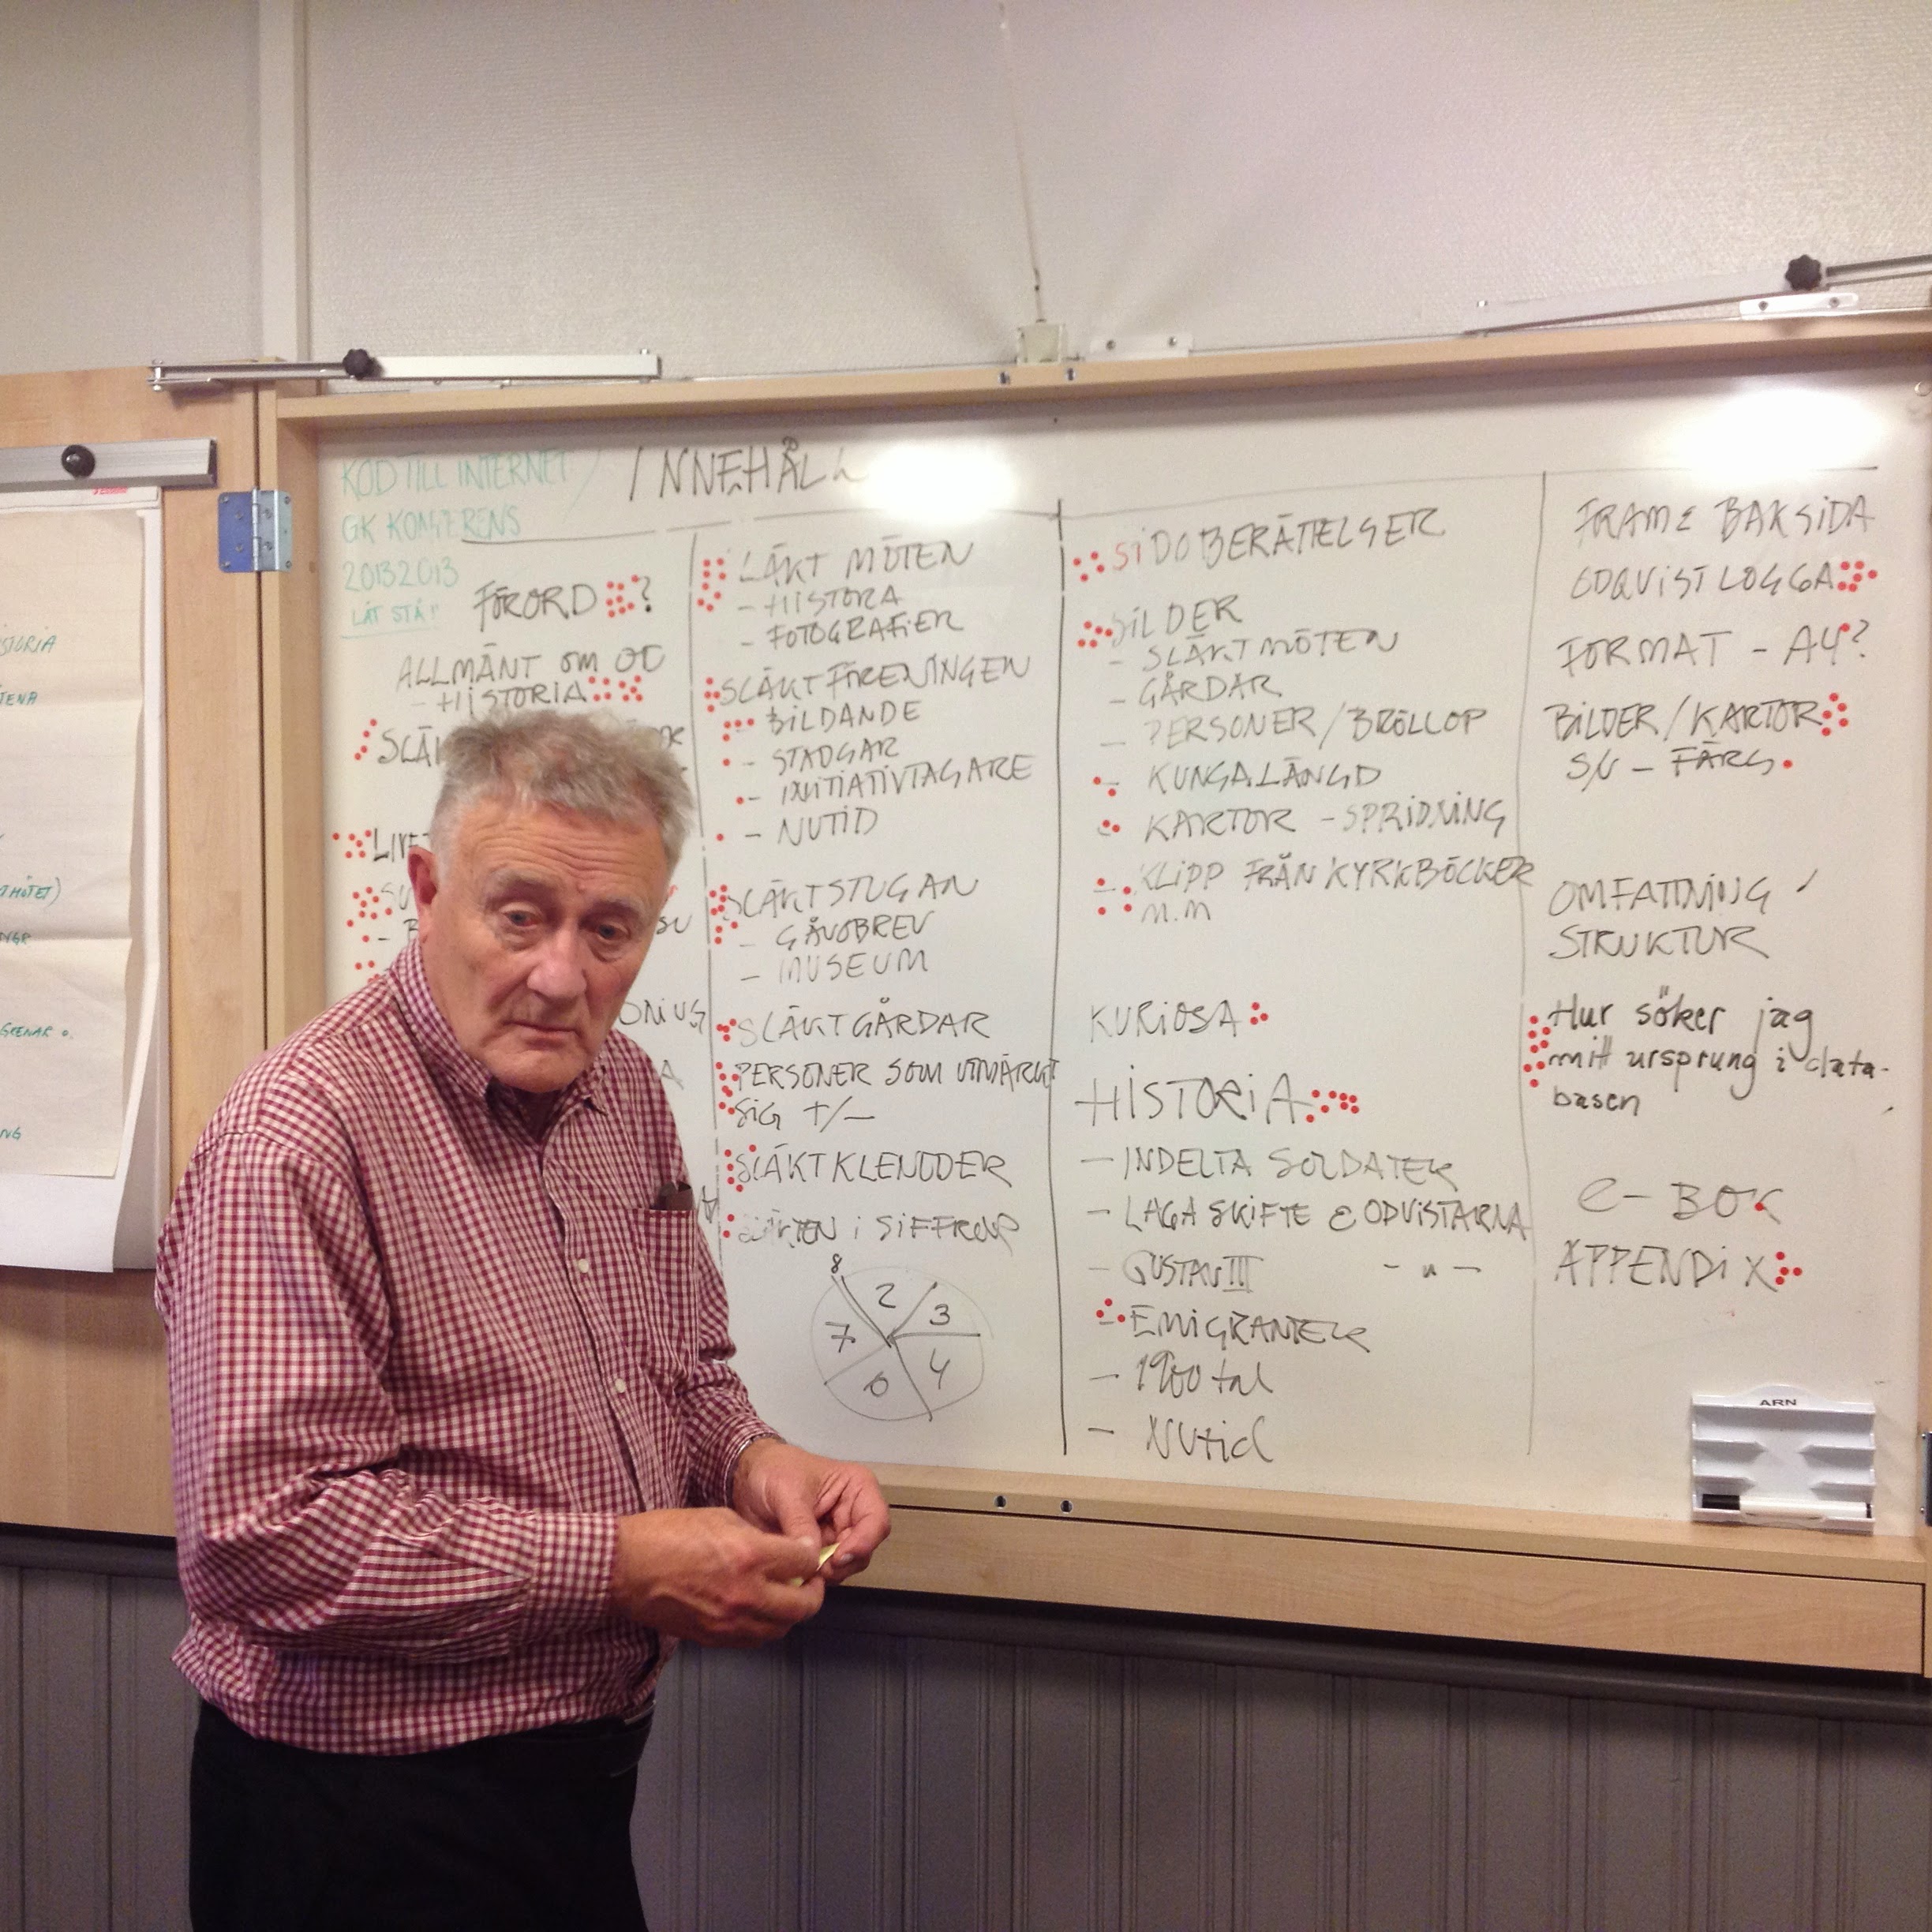 KOD TILL INTERNET
GK KONFERENS
20132013
LÅT STÅ!
INNEHÅLL
FÖRORD ?
ALLMÄNT OM
- HISTORIA
LÄKT MÖTEN
- HISTORA
- FOTOGRAFIER
SLÄKTFÖRENINGEN
- BILDANDE
- STADGAR
- INITIATIVTAGARE
- NUTID
SLÄKTSTUGAN
- GÅVOBREV
- MUSEUM
SLÄKTGÅRDAR
PERSONER SOM UTMÄRKT
SIG +/-
SLÄKTKLENODER
I SIFFROR
8
2
3
7
4
6
SIDOBERÄTTELSER
BILDER
- SLÄKTMÖTEN
- GÅRDAR
- PERSONER/BRÖLLOP
- KUNGALÄNGD
KARTOR - SPRIDNING
- KLIPP FRÅN KYRKBÖCKER
M.M
KURIOSA
HISTORIA
- INDELTA SOLDATER
- LAGA SKIFTE & ODQVISTARNA
- GUSTAV III - " -
- EMIGRANTER
- 1900 tal
- NUtid
FRAM & BAKSIDA
ODQVIST LOGGA
FORMAT - A4?
BILDER/KARTOR
S/V - FÄRG
OMFATTNING
STRUKTUR
Hur söker jag
mitt ursprung i data-
basen
e-BOK
APPENDIX
ARN